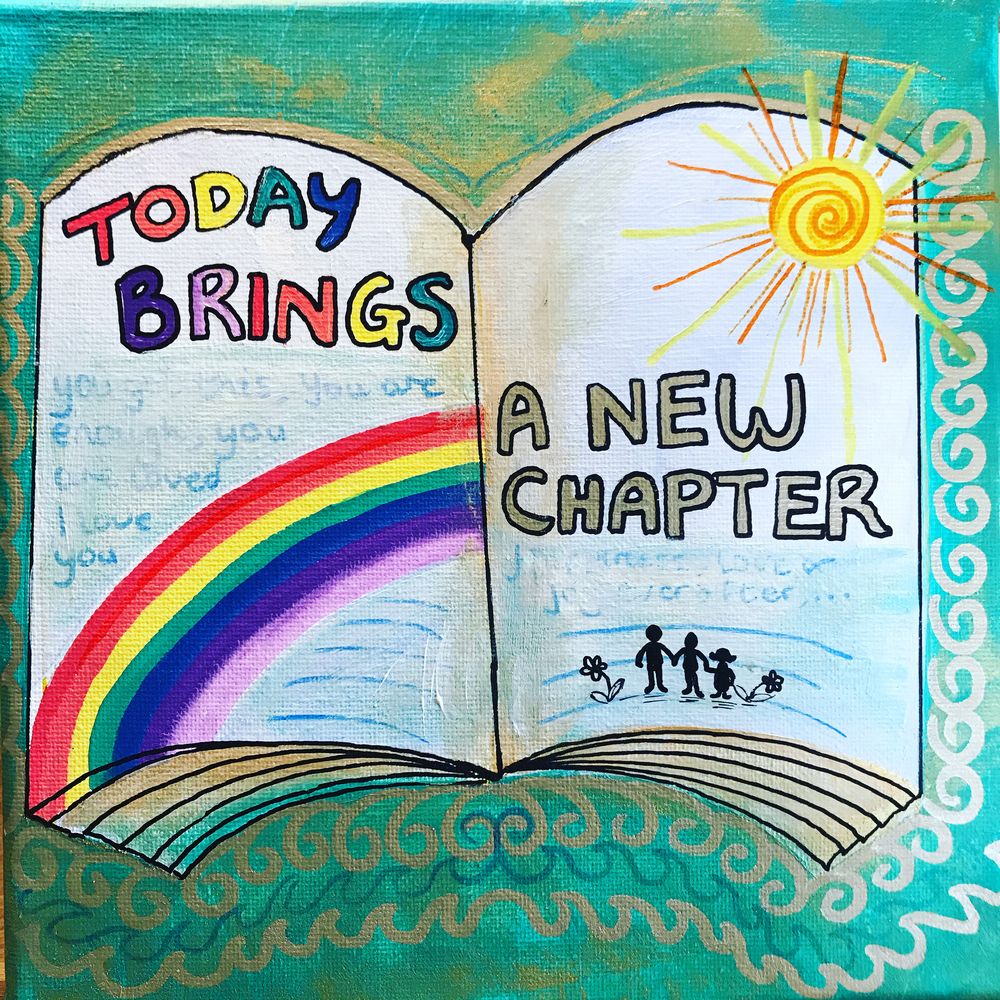 TODAY
BRINGS
you this, you are
enough, you
are loved
I love
you
A NEW
CHAPTER
love
joy ever after...